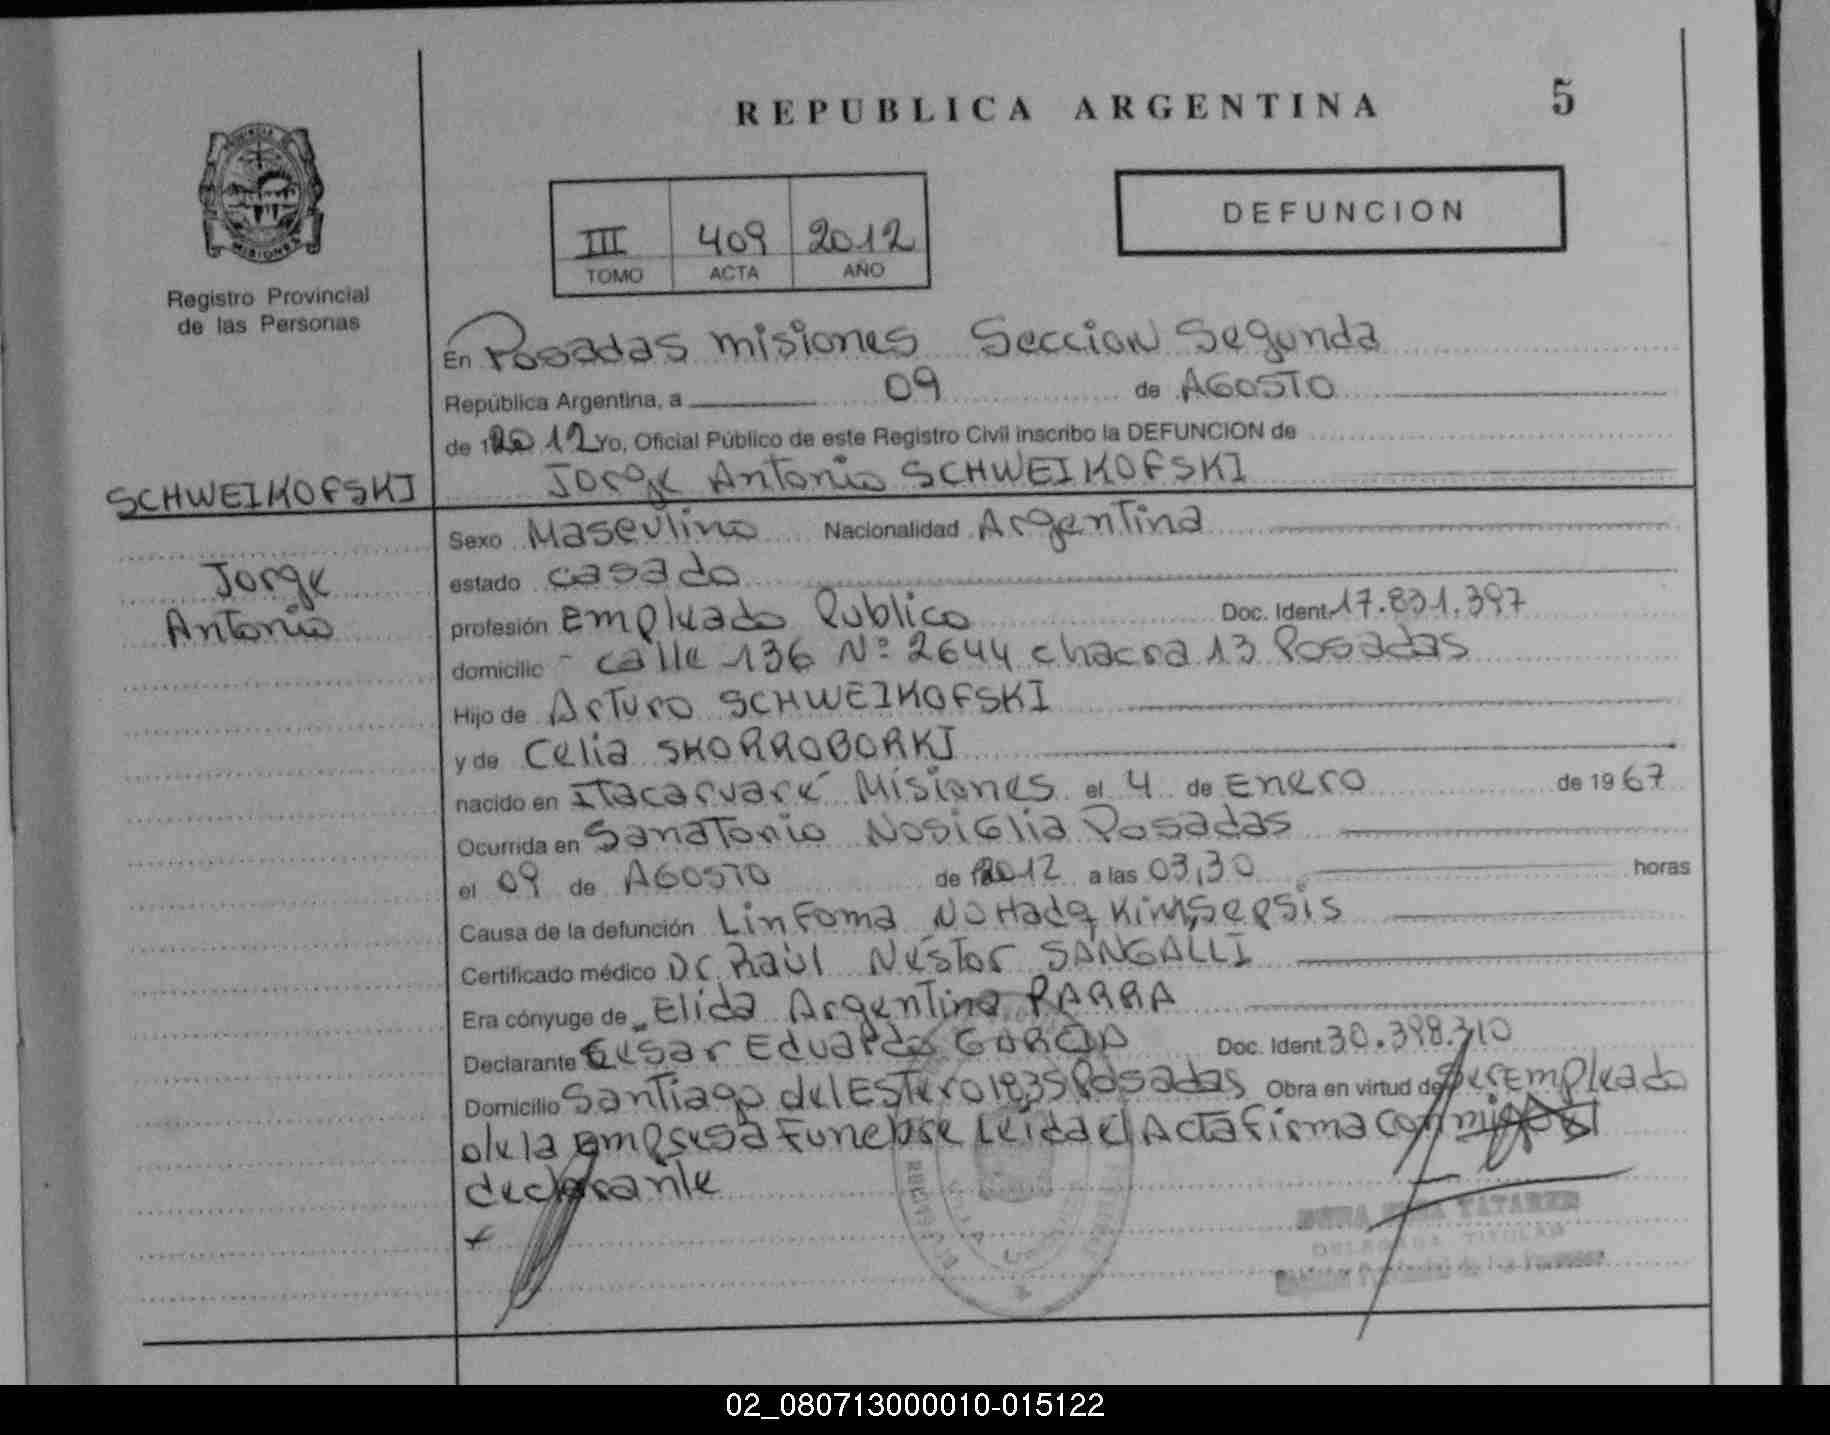 REPUBLICA ARGENTINA
5
MISIONES
Registro Provincial
de las Personas
III 409 2012
TOMO ACTA AÑO
DEFUNCION
En Posadas misiones Seccion Segunda
República Argentina, a 09 de AGOSTO
de 12012 Yo, Oficial Público de este Registro Civil inscribo la DEFUNCION de
Jorge Antonio SCHWEIKOFSKI
SCHWEIKOFSKI
Jorge
Antonio
Sexo Masculino Nacionalidad Argentina
estado casado
profesión Empleado Publico Doc. Ident. 17.831.397
domicilio calle 136 Nº 2644 chacra 13 Posadas
Hijo de Arturo SCHWEIKOFSKI
y de Celia SKORROBORKI
nacido en Itacaruaré Misiones el 4 de Enero de 1967
Ocurrida en Sanatorio Nosiglia Posadas
el 09 de AGOSTO de 2012 a las 03,30 horas
Causa de la defunción Linfoma No Hadgkim, Sepsis
Certificado médico Dr. Raúl Néstor SANGALLI
Era cónyuge de Elida Argentina PARRA
Declarante Cesar Eduardo GARCIA Doc. Ident. 30.398.310
Domicilio Santiago del Estero 1835 Posadas Obra en virtud de ser Empleado
de la Empresa Funebre Leida el Acta firma conmigo el
declarante
TATAREN
DELEGADA TITULAR
Provincial de las Personas
02_080713000010-015122